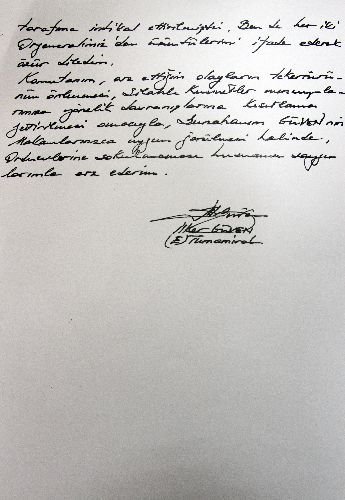 tarafıma intikal ettirilmiştir. Ben de her iki
Orgeneralimiz'den üzüntülerimi ifade ederek
özür diledim.
Komutanım, arz ettiğim olayların tekerrürü-
nün önlenmesi, Silahlı Kuvvetler mensupla-
rımıza yönelik davranışlarına kısıtlama
getirilmesi amacıyla, GÜVEN'nin
Makamlarınızca uygun görülmesi halinde,
Orduevlerine sokulmaması hususunu saygı
larımla arz ederim.
İlker GÜVEN
(E) Tümamiral